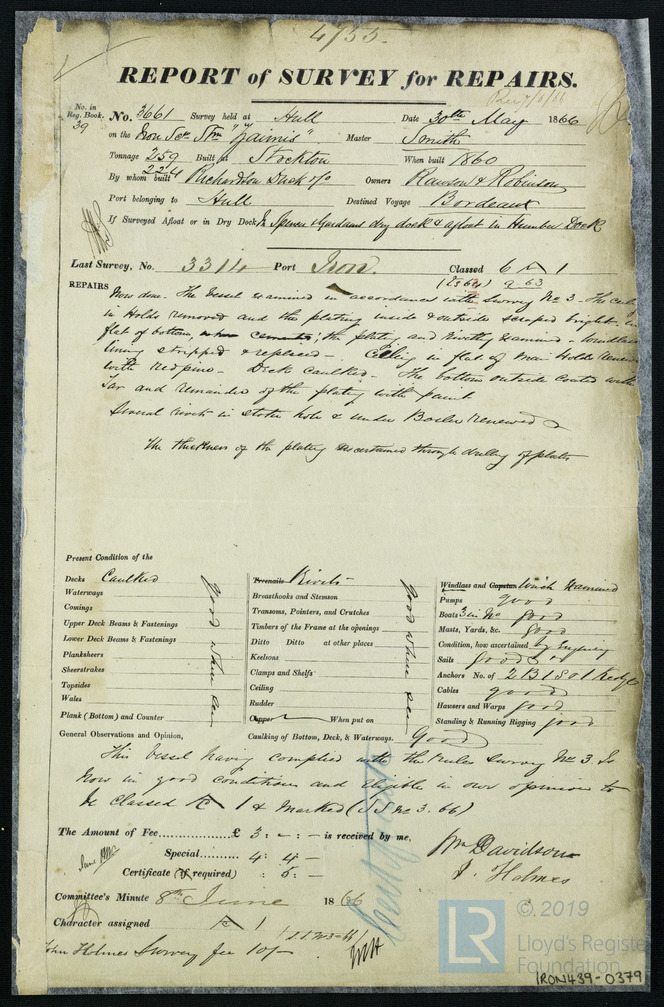 4755.
REPORT of SURVEY for REPAIRS.
No. in Reg. Book. 39
No. 3661 Survey held at Hull Date 30th May 1866
on the Iron Scr Stm "Zaimis" Master Smith
Tonnage 259 224 Built at Stockton When built 1860
By whom built Richardson Duck & Co Owners Rawson & Robinson
Port belonging to Hull Destined Voyage Bordeaux
If Surveyed Afloat or in Dry Dock In Spencer & Gardams dry dock & afloat in Humber Dock
Last Survey, No. 3314 Port Iron. Classed 6 A 1
9-63
REPAIRS Now done. The Vessel examined in accordance with Survey No 3 - The
in Holds removed and the plating inside & outside scraped bright - in
flat of bottom, the plating and rivetting examined - Windlass
lining stripped & replaced - Ceiling in flat of Main Holds
with red pine - Deck caulked - The bottom outside coated with
Tar and remainder of the plating with paint
Several rivets in stoke hole & under Boiler renewed
The thickness of the plating ascertained through drilling of plates
Present Condition of the
Decks Caulked
Waterways
Comings
Upper Deck Beams & Fastenings
Lower Deck Beams & Fastenings
Planksheers
Sheerstrakes
Topsides
Wales
Plank (Bottom) and Counter
Good where seen
Treenails Rivets
Breasthooks and Stemson
Transoms, Pointers, and Crutches
Timbers of the Frame at the openings
Ditto Ditto at other places
Keelsons
Clamps and Shelfs
Ceiling
Rudder
Copper When put on
Caulking of Bottom, Deck, & Waterways. Good
Good where seen
Windlass and Capstan Winch Examined
Pumps good
Boats 3 in No good
Masts, Yards, &c. good
Condition, how ascertained by Enquiry
Sails good
Anchors No. of 2 B 1 S 01 Kedge
Cables good
Hawsers and Warps good
Standing & Running Rigging good
General Observations and Opinion,
This Vessel having complied with the Rules Survey No 3. Is
now in good condition and eligible in our opinion to
be classed A 1 & marked (S S No 3. 66)
The Amount of Fee............... £ 3 : - : - is received by me,
Special........ 4 : 4 : -
Certificate (if required) : 5 : -
Wm Davidson
J. Holmes
Committee's Minute 8th June 1866
Character assigned A 1
S.S. No 3-66
John Holmes Survey fee 10/-
© 2019
LR
Lloyd's Register
Foundation
IRON439-0379